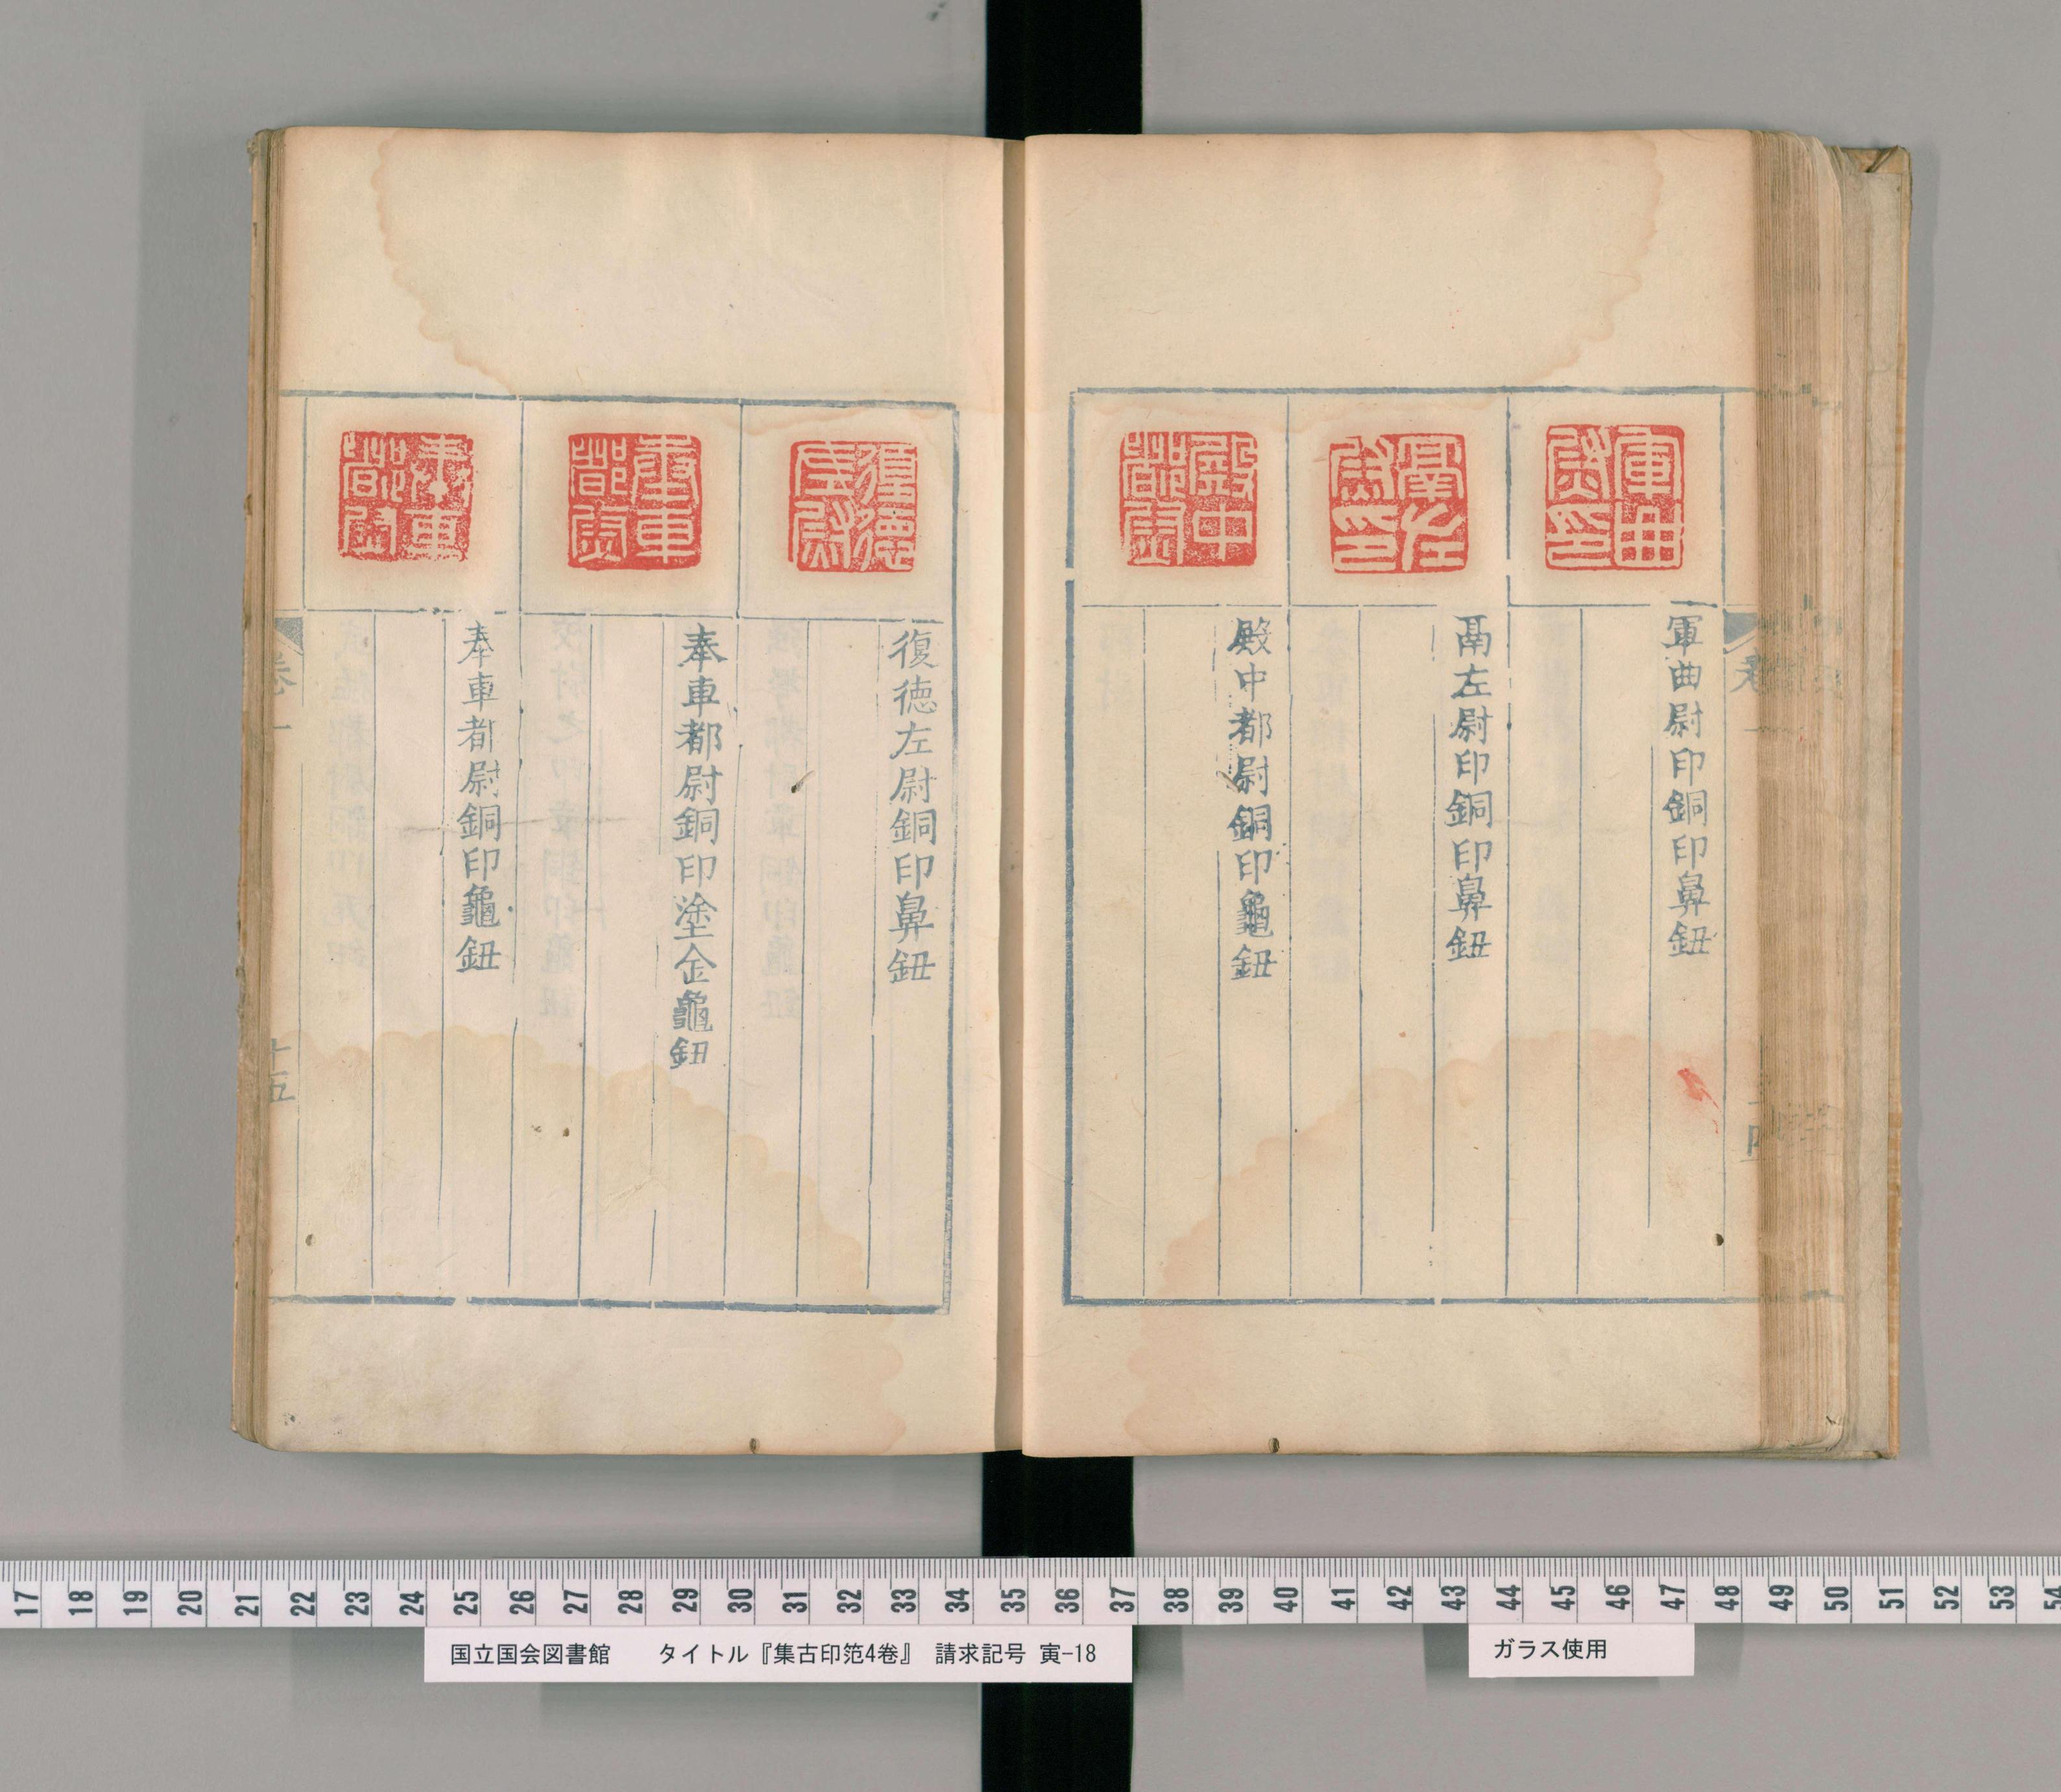 軍曲
尉印
軍曲尉印銅印鼻鈕
左
尉印
左尉印銅印鼻鈕
殿中
都尉
殿中都尉銅印龜鈕
卷一
復德
左尉
復德左尉銅印鼻鈕
奉車
都尉
奉車都尉銅印塗金龜鈕
奉車
都尉
奉車都尉銅印龜鈕
卷一
十五
17 18 19 20 21 22 23 24 25 26 27 28 29 30 31 32 33 34 35 36 37 38 39 40 41 42 43 44 45 46 47 48 49 50 51 52 53 54
国立国会図書館 タイトル『集古印笵4巻』 請求記号 寅-18
ガラス使用